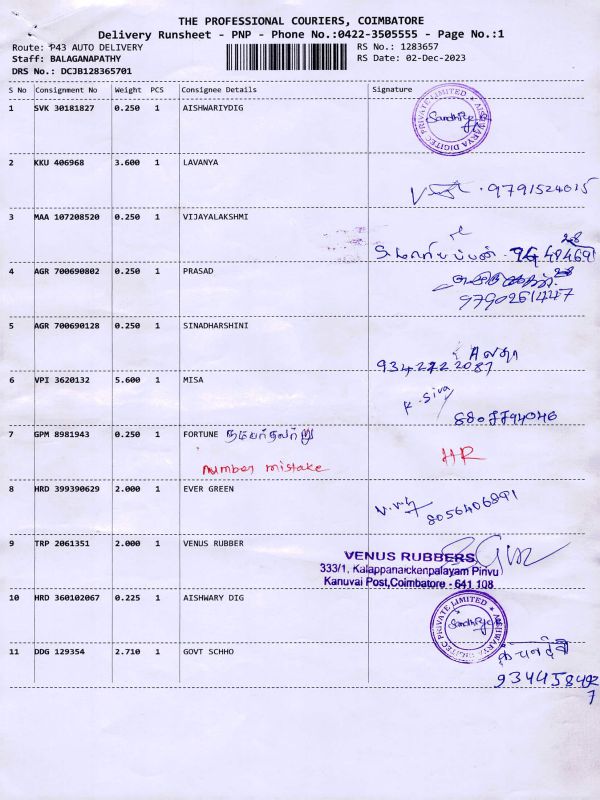 THE PROFESSIONAL COURIERS, COIMBATORE
Delivery Runsheet - PNP - Phone No.:0422-3505555 - Page No.:1
Route: P43 AUTO DELIVERY RS No.: 1283657
Staff: BALAGANAPATHY RS Date: 02-Dec-2023
DRS No.: DCJB128365701
S No Consignment No Weight PCS Consignee Details Signature
1 SVK 30181827 0.250 1 AISHWARIYDIG
AISHWARYA DIGITEC PRIVATE LIMITED
2 KKU 406968 3.600 1 LAVANYA
9791524015
3 MAA 107208520 0.250 1 VIJAYALAKSHMI
4 AGR 700690802 0.250 1 PRASAD
9790261447
5 AGR 700690128 0.250 1 SINADHARSHINI
6 VPI 3620132 5.600 1 MISA
K. Siva
7 GPM 8981943 0.250 1 FORTUNE
number mistake HR
8 HRD 399390629 2.000 1 EVER GREEN
8056406891
9 TRP 2061351 2.000 1 VENUS RUBBER
VENUS RUBBERS
333/1, Kalappanaickenpalayam Pirivu
Kanuvai Post, Coimbatore - 641 108
10 HRD 360102067 0.225 1 AISHWARY DIG
AISHWARYA DIGITEC PRIVATE LIMITED
11 DDG 129354 2.710 1 GOVT SCHHO